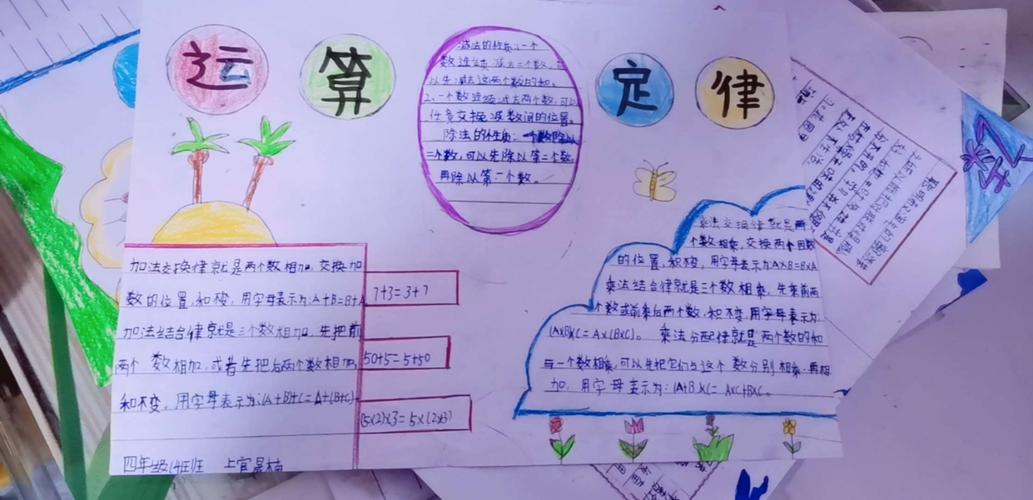 运算定律
减法的性质:1、一个
数连续减去二个数,可
以先减去这两个数的和。
2、一个数连续减去两个数,可以
任意交换减数间的位置。
除法的性质:一个数除以
二个数,可以先除以第二个数,
再除以第一个数。
加法交换律就是两个数相加,交换加
数的位置,和不变,用字母表示为:A+B=B+A
加法结合律就是三个数相加,先把前
两个数相加,或者先把后两个数相加,
和不变,用字母表示为:(A+B)+C=A+(B+C)
7+3=3+7
50+5=5+50
(5×(2)×3=5×(2×3)
四年级(4)班班 上官晨楠
乘法交换律就是两
个数相乘,交换两个因数
的位置,积不变,用字母表示为:A×B=B×A
乘法结合律就是三个数相乘,先乘前两
个数或前乘后两个数,积不变,用字母表示为:
(A×B)×C=A×(B×C)。乘法分配律就是两个数的和
与一个数相乘,可以先把它们与这个数分别相乘,再相
加,用字母表示为:(A+B)×C=A×C+B×C。